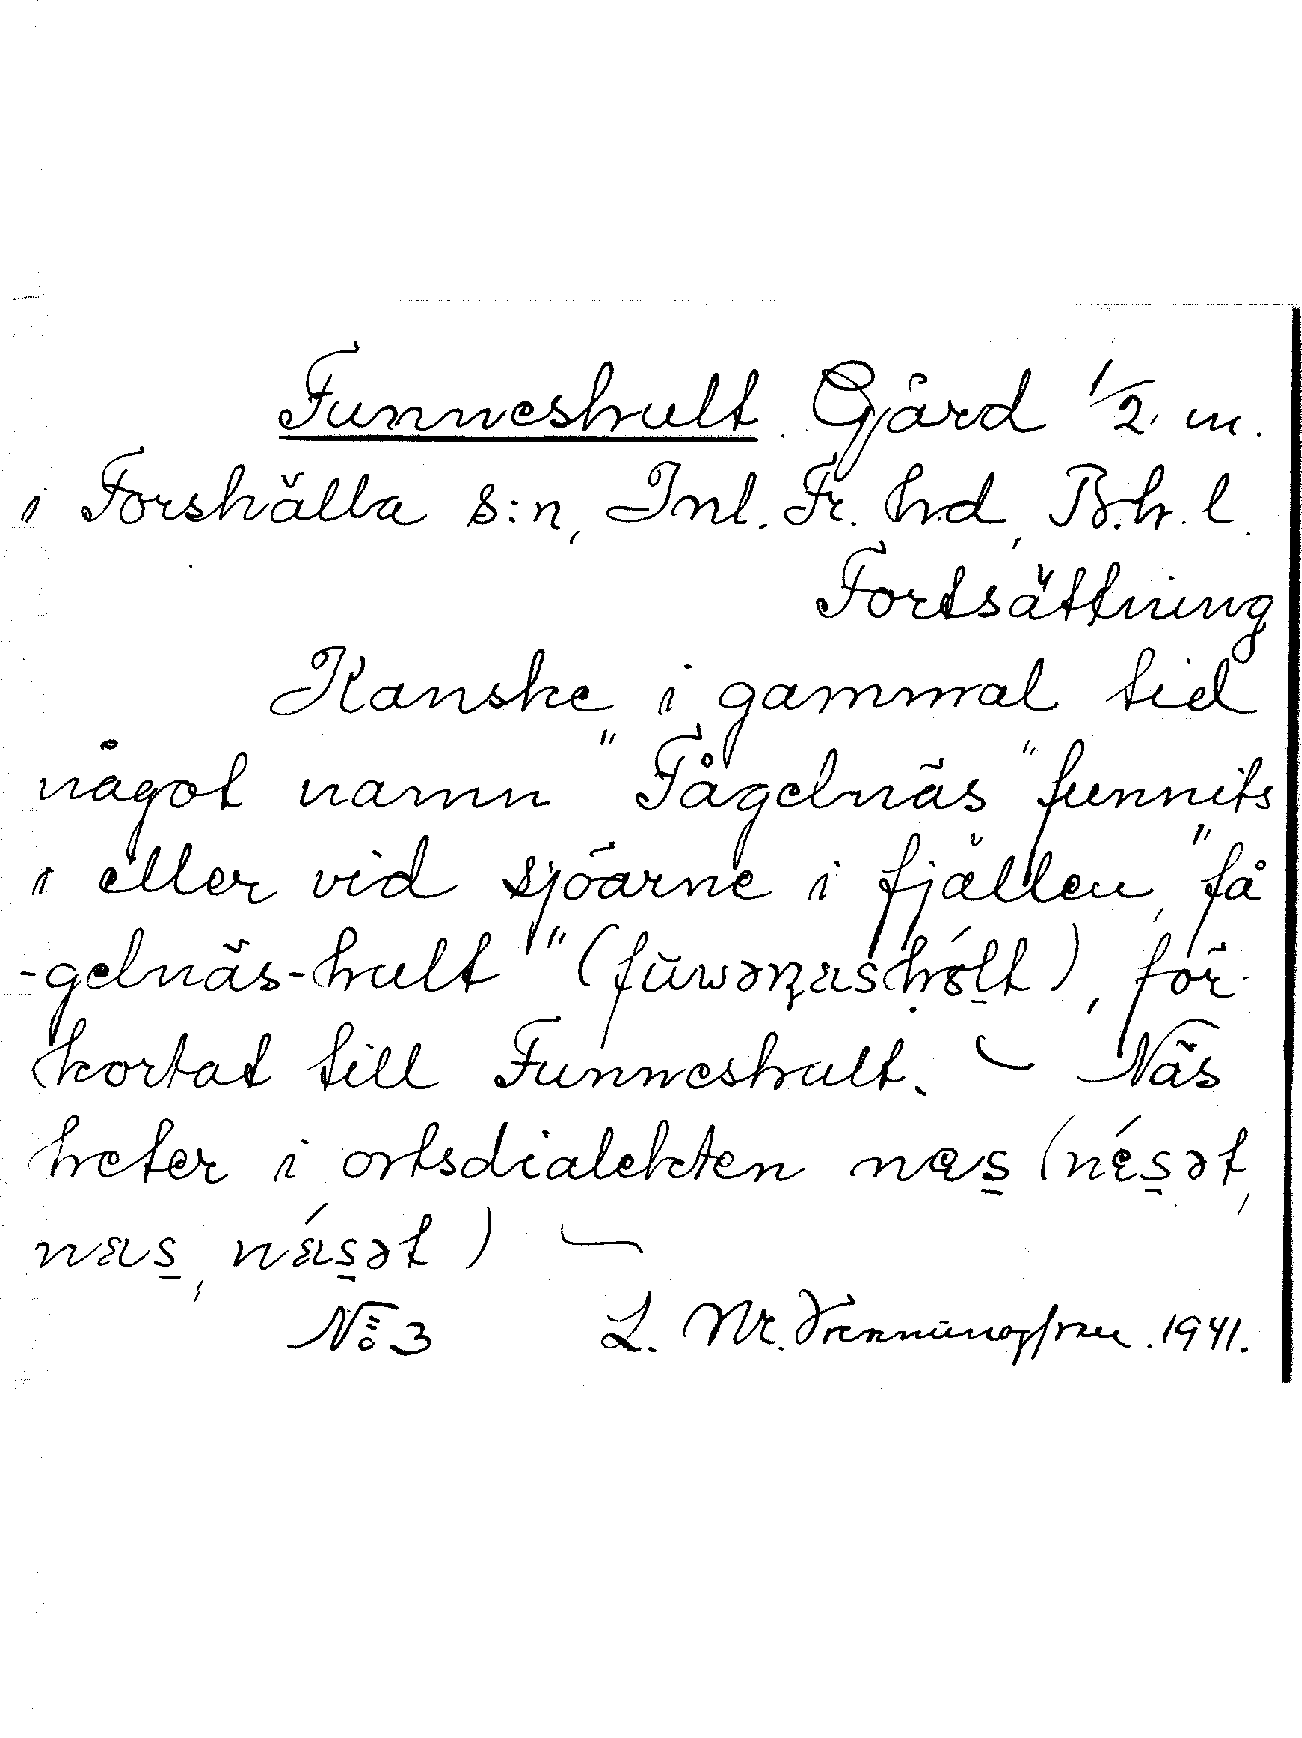 Funneshult. Gård 1/2. m.
i Forshälla s:n, Inl. Fr. hd, B.h.l.
Fortsättning
Kanske i gammal tid
något namn "Fågelnäs" funnits
i eller vid sjöarne i fjällen, "få
-gelnäs-hult" (fūwəɳæshólt), för-
kortat till Funneshult. – Näs
heter i ortsdialekten næs (nǽsət,
nas, násət) –
No 3 L. Mr. 1941.